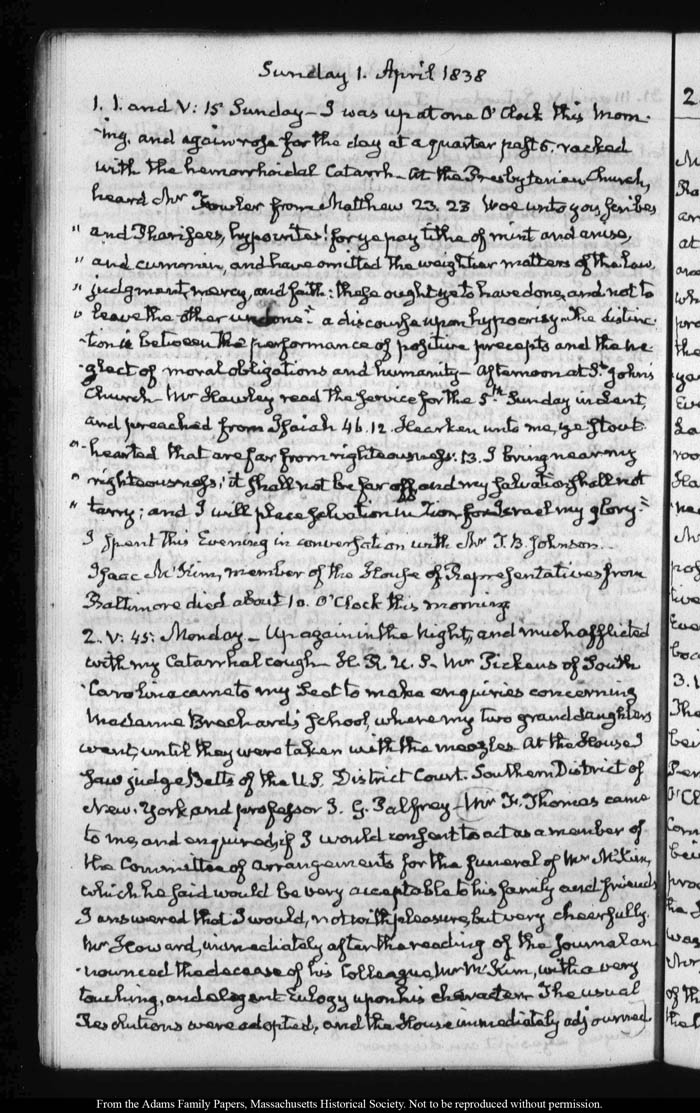 Sunday 1. April 1838
1. 1. and V: 15 Sunday – I was up at one O'Clock this Morn-
-ing, and again rose for the day at a quarter past 6. racked
with the hemorrhoidal Catarrh – At the Presbyterian Church,
heard Mr Fowler from Matthew 23. 23 Woe unto you, Scribes
" and Pharisees, hypocrites! for ye pay tithe of mint and anise,
" and cummin, and have omitted the weightier matters of the Law,
" judgment, mercy, and faith: these ought ye to have done, and not to
" leave the other undone" a discourse upon hypocrisy – the distinc-
-tion is between the performance of positive precepts and the ne-
-glect of moral obligations and humanity – Afternoon at St. John's
Church – Mr Hawley read the service for the 5th Sunday in Lent,
and preached from Isaiah 46. 12 Hearken unto me, ye stout-
"-hearted that are far from righteousness: 13. I bring near my
" righteousness; it shall not be far off and my salvation shall not
" tarry; and I will place salvation in Zion for Israel my glory."
I spent this Evening in conversation with Mr T. B. Johnson.
Isaac McKim, member of the House of Representatives from
Baltimore died about 10. O'Clock this morning
2. V: 45: Monday – Up again in the Night, and much afflicted
with my Catarrhal cough – H. R. U. S. Mr Pickens of South
Carolina came to my Seat to make enquiries concerning
Madame school, where my two grand daughters
went, until they were taken with the meazles. At the House I
saw judge Betts of the U.S. District Court. Southern District of
New-York and professor J. G. Palfrey – Mr F. Thomas came
to me, and enquired, if I would consent to act as a member of
the Committee of arrangements for the funeral of Mr McKim,
which he said would be very acceptable to his family and friends
I answered that I would, not with pleasure, but very cheerfully.
Mr Howard, immediately after the reading of the Journal an-
-nounced the decease of his Colleague, Mr McKim, with a very
touching, and elegant Eulogy upon his character. The usual
Resolutions were adopted, and the House immediately adjourned.
2
From the Adams Family Papers, Massachusetts Historical Society. Not to be reproduced without permission.